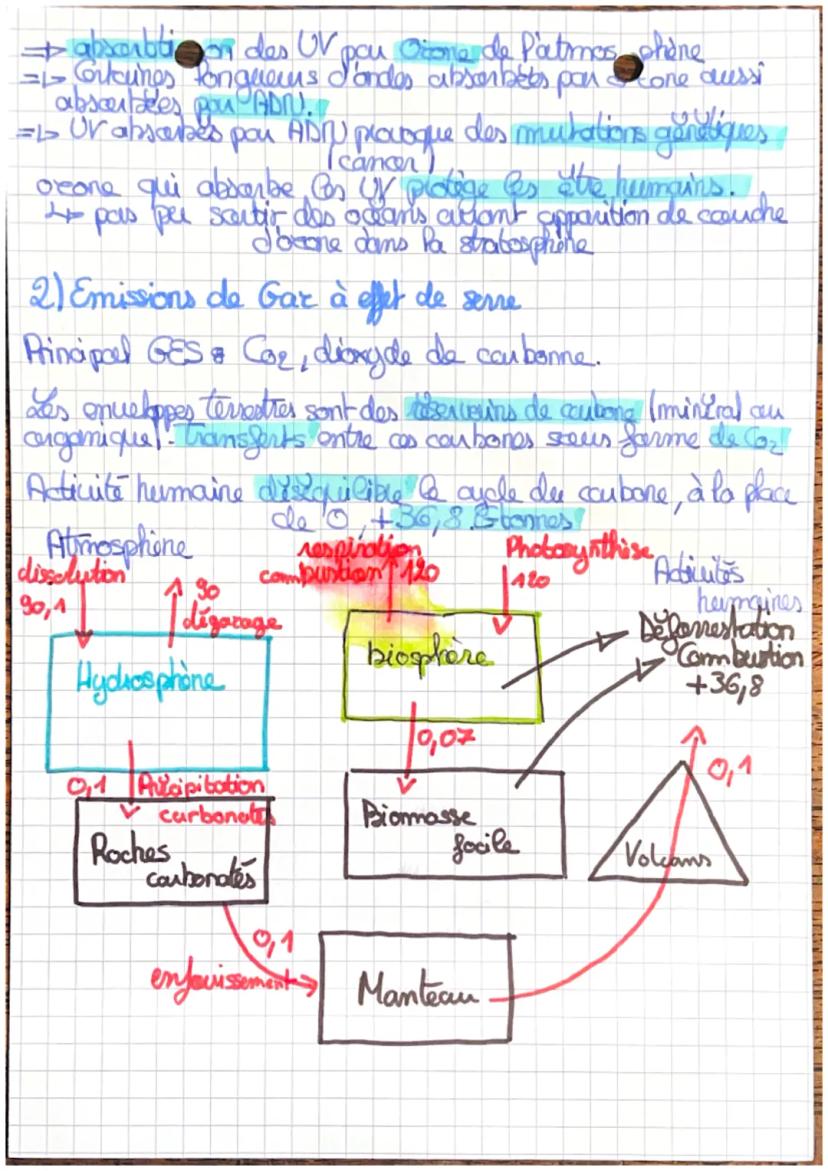 => absorbtion des UV par Ozone de l'atmosphère
=> Certaines longueurs d'ondes absorbées par ozone aussi
absorbées par ADN.
=> UV absorbés par ADN provoque des mutations génétiques
(cancer)
ozone qui absorbe les UV protège les être humains.
↳ pas pu sortir des océans avant apparition de couche
d'ozone dans la stratosphère
2) Emissions de Gaz à effet de serre
Principal GES = Co2, dioxyde de carbonne.
Les enveloppes terrestres sont des réservoirs de carbone (minéral ou
organique). Transferts entre ces carbones sous forme de Co2
Activité humaine déséquilibre le cycle du carbone, à la place
de 0, +36,8 Gtonnes
Atmosphère
dissolution
90,1
90
dégazage
respiration
combustion 120
Photosynthèse
120
Activités
humaines
Déforrestation
Combustion
+36,8
Hydrosphère
biosphère
0,07
0,1 Précipitation
carbonates
Roches
carbonatés
Biomasse
focile
Volcans
0,1
0,1
enfouissement
Manteau